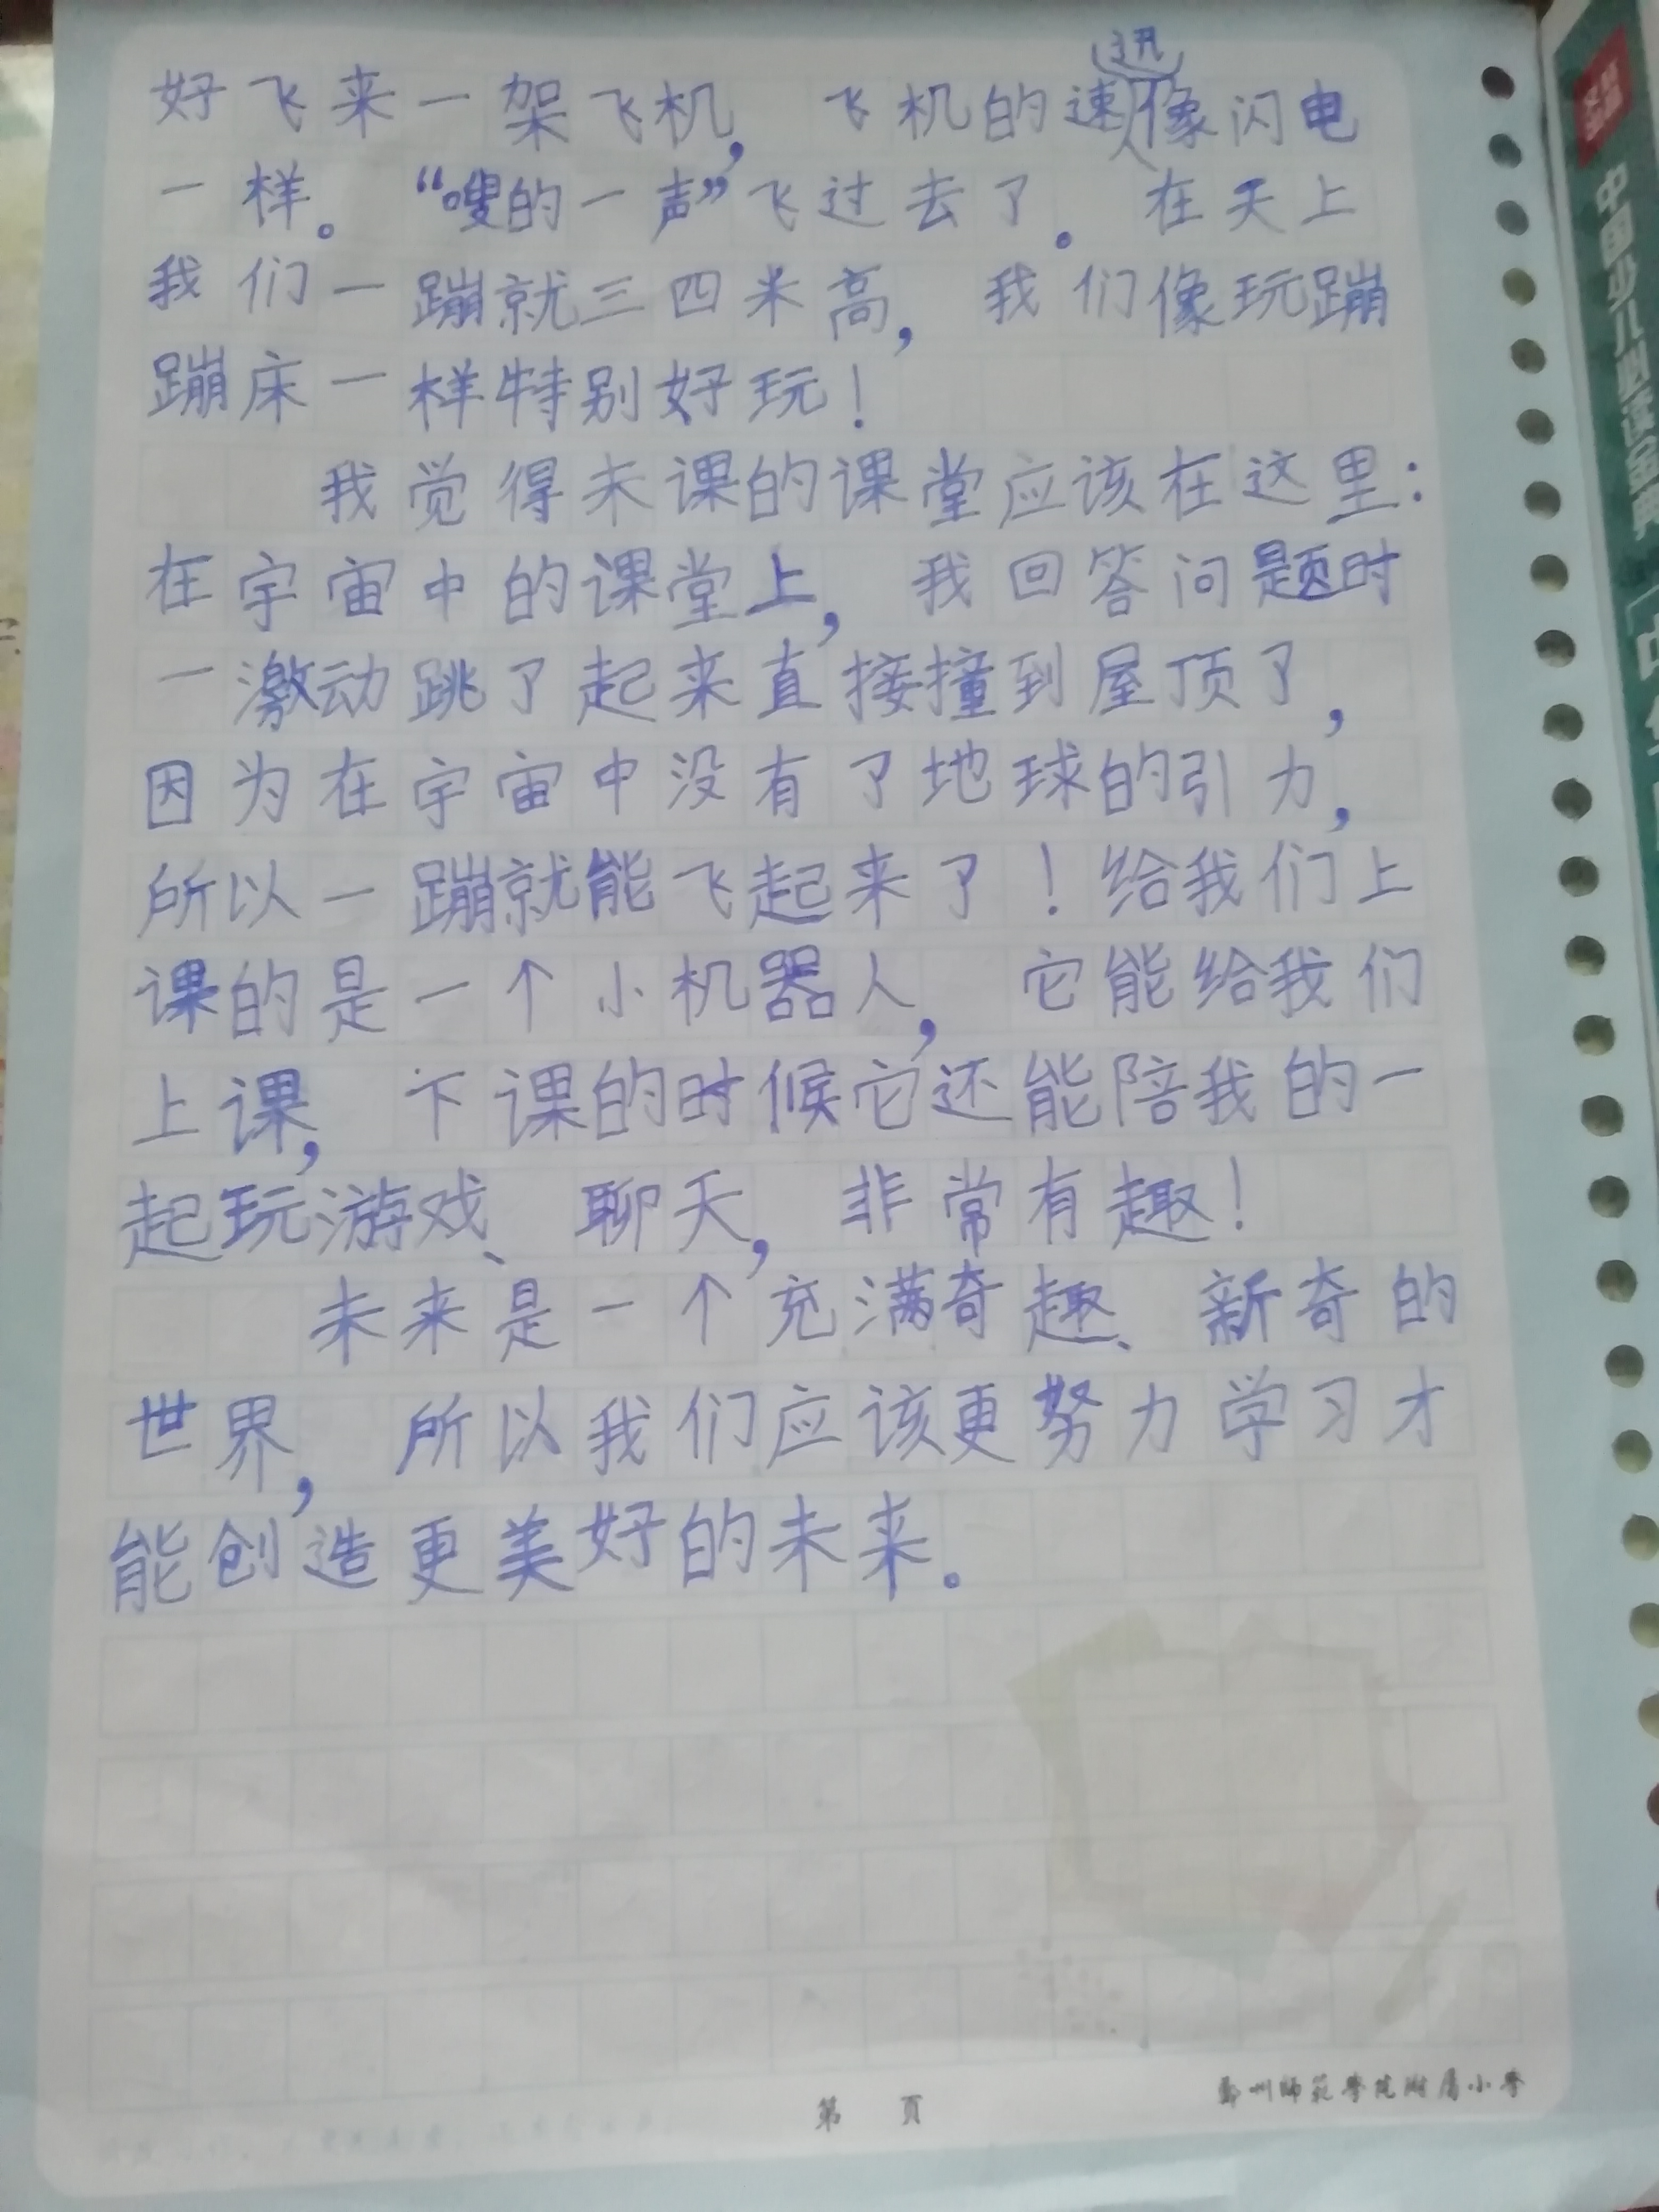 好飞来一架飞机，飞机的速迅像闪电
一样。“嗖的一声”飞过去了。在天上
我们一蹦就三四米高，我们像玩蹦
蹦床一样特别好玩！
我觉得未课的课堂应该在这里：
在宇宙中的课堂上，我回答问题时
一激动跳了起来直接撞到屋顶了，
因为在宇宙中没有了地球的引力，
所以一蹦就能飞起来了！给我们上
课的是一个小机器人，它能给我们
上课，下课的时候它还能陪我的一
起玩游戏、聊天，非常有趣！
未来是一个充满奇趣、新奇的
世界，所以我们应该更努力学习才
能创造更美好的未来。
第 页
郑州师范学院附属小学
中国少儿必读金典